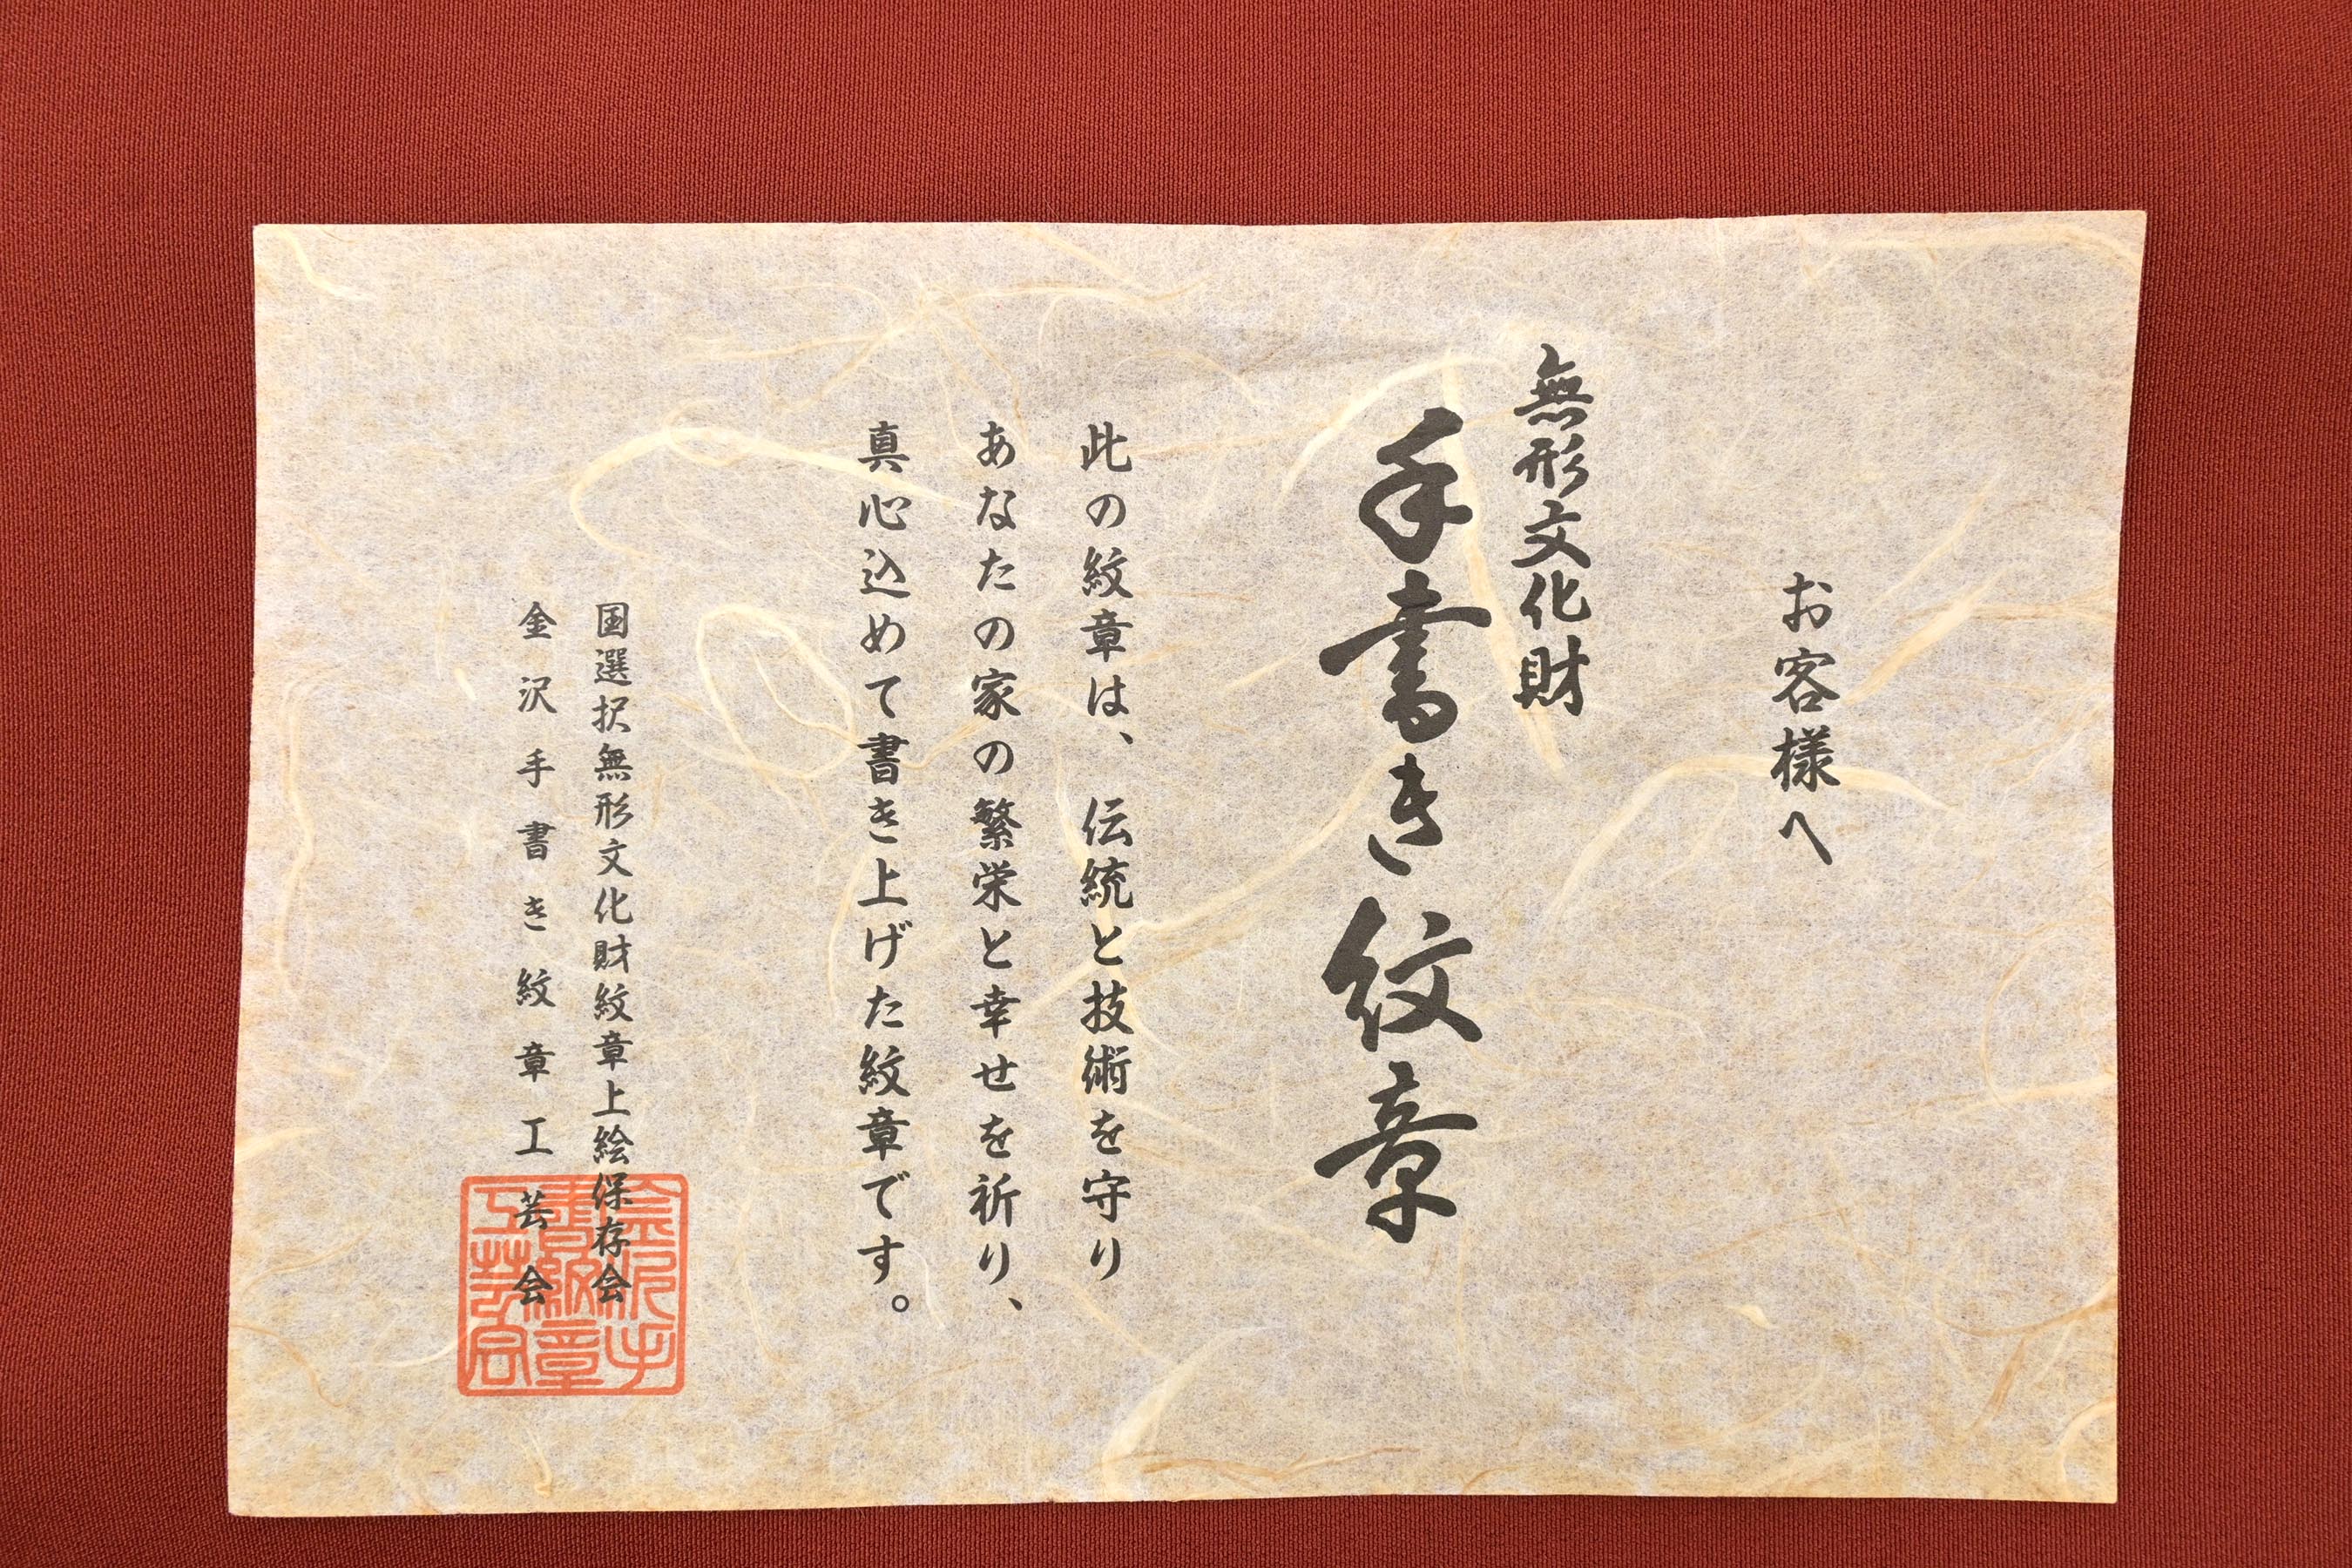 お客様へ
無形文化財
手書き紋章
此の紋章は、伝統と技術を守り
あなたの家の繁栄と幸せを祈り、
真心込めて書き上げた紋章です。
国選択無形文化財紋章上絵保存会
金沢手書き紋章工芸会
金沢手
書紋章
工芸会